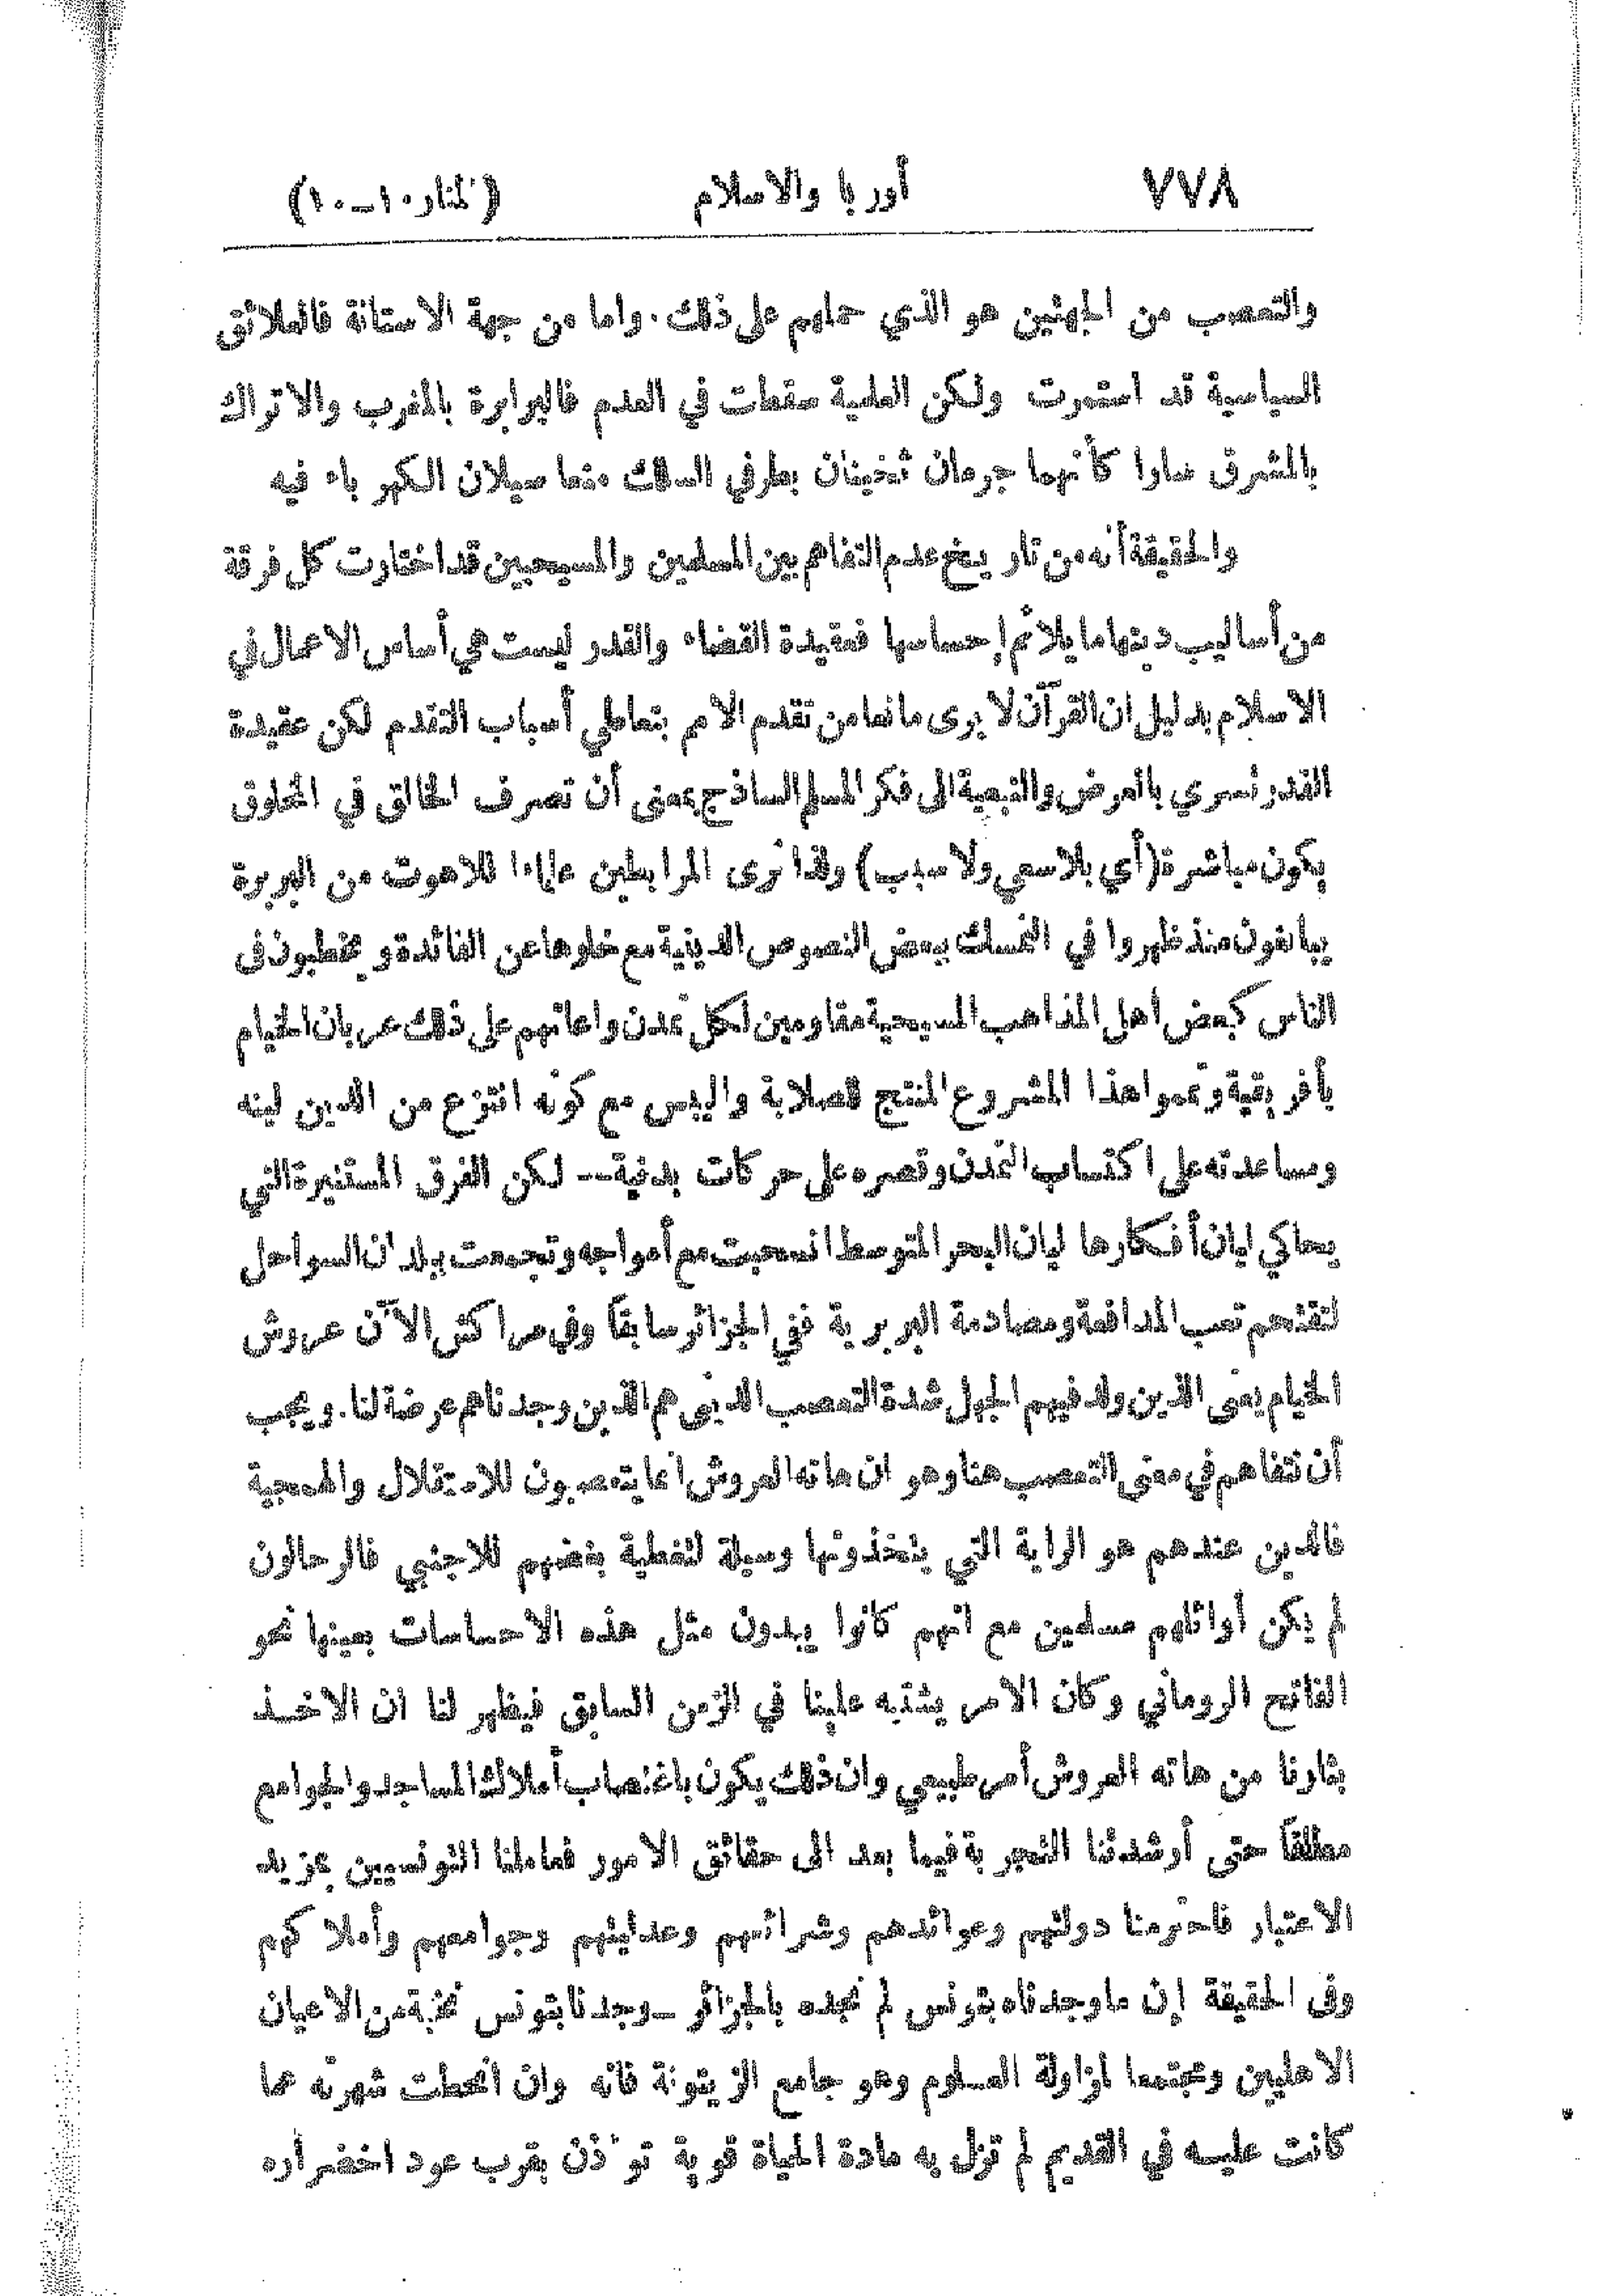 ٧٧٨ أوربا والاسلام (المنار ١٠ـ١٠)
والتعصب من الجهتين هو الذي حملهم على ذلك. واما من جهة الاستانة فالعلائق
السياسية قد استمرت ولكن العلمية سقطت في العدم فالبرابرة بالمغرب والاتراك
بالمشرق صاروا كأنهما جرمان ثخينان بطرفي السلك منعا سيلان الكهرباء فيه
والحقيقة أنه من تاريخ عدم التفاهم بين المسلمين والمسيحيين قد اختارت كل فرقة
من أساليب دينها ما يلائم إحساسها فعقيدة القضاء والقدر ليست هي أساس الاعمال في
الاسلام بدليل ان القرآن لا يرى مانعا من تقدم الامم بتعاطي أسباب التقدم لكن عقيدة
القدر تسري بالعرض والتبعية الى فكر المسلم الساذج بمعنى أن تصرف الخالق في المخلوق
يكون مباشرة (أي بلا سعي ولا سبب) ولذا ترى المرابطين علماء اللاهوت من البربرة
يبالغون منذ ظهروا في التمسك ببعض النصوص الدينية مع خلوها عن الفائدة ويخطبون في
الناس كبعض أهل المذاهب المسيحية مقاومين لكل تمدن واعانهم على ذلك عربان الخيام
بأفريقية وتمموا هذا المشروع المنتج للصلابة واليبس مع كونه انتزع من الدين لينه
ومساعدته على اكتساب التمدن وقصره على حركات بدنية-- لكن الفرق المستنيرة التي
يحاكي ليان أفكارها ليان البحر المتوسط انسحبت مع أمواجه وتجمعت ببلدان السواحل
لتقتحم تعب المدافعة ومصادمة البربرية ففي الجزائر سابقاً وفي مراكش الآن عروش
الخيام يعنى الذين ولد فيهم الجهل شدة التعصب الديني هم الذين وجدناهم عرضة لنا. ويجب
أن نتفاهم في معنى التعصب هنا وهو ان هاته العروش انما يتعصبون للاستقلال والهمجية
فالدين عندهم هو الراية التي يتخذونها وسيلة لتغطية بغضهم للاجنبي فالرحالون
لم يكن أوائلهم مسلمين مع انهم كانوا يبدون مثل هذه الاحساسات بعينها نحو
الفاتح الروماني وكان الامر يشتبه علينا في الزمن السابق فيظهر لنا ان الاخذ
بثارنا من هاته العروش أمر طبيعي وان ذلك يكون باغتصاب أملاك المساجد والجوامع
مطلقاً حتى أرشدتنا التجربة فيما بعد الى حقائق الامور فعاملنا التونسيين بمزيد
الاعتبار فاحترمنا دولتهم وعوائدهم وشرائعهم وعدليتهم وجوامعهم وأملاكهم
وفى الحقيقة إن ما وجدناه بتونس لم نجده بالجزائر ــ وجدنا بتونس نخبة من الاعيان
الاهليين ومجتمعا لمزاولة العلوم وهو جامع الزيتونة فانه وان انحطت شهرته عما
كانت عليه في القديم لم تزل به مادة الحياة قوية تؤذن بقرب عود اخضراره